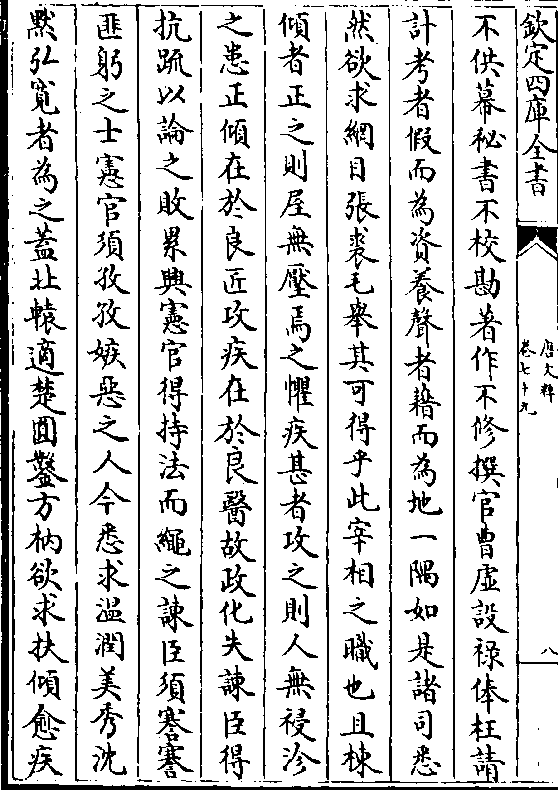 欽定四庫全書
唐文粹
卷七十九
八
不供幕秘書不校勘著作不修撰官曹虛設祿俸枉請
計考者假而為資養聲者藉而為地一隅如是諸司悉
然欲求網目張裘毛舉其可得乎此宰相之職也且棟
傾者正之則屋無壓焉之懼疾甚者攻之則人無祲沴
之患正傾在於良匠攻疾在於良醫故政化失諫臣得
抗疏以論之敗累興憲官得持法而繩之諫臣須謇謇
匪躬之士憲官須孜孜嫉惡之人今悉求溫潤美秀沈
黙弘寛者為之蓋北轅適楚圓鑿方枘欲求扶傾愈疾